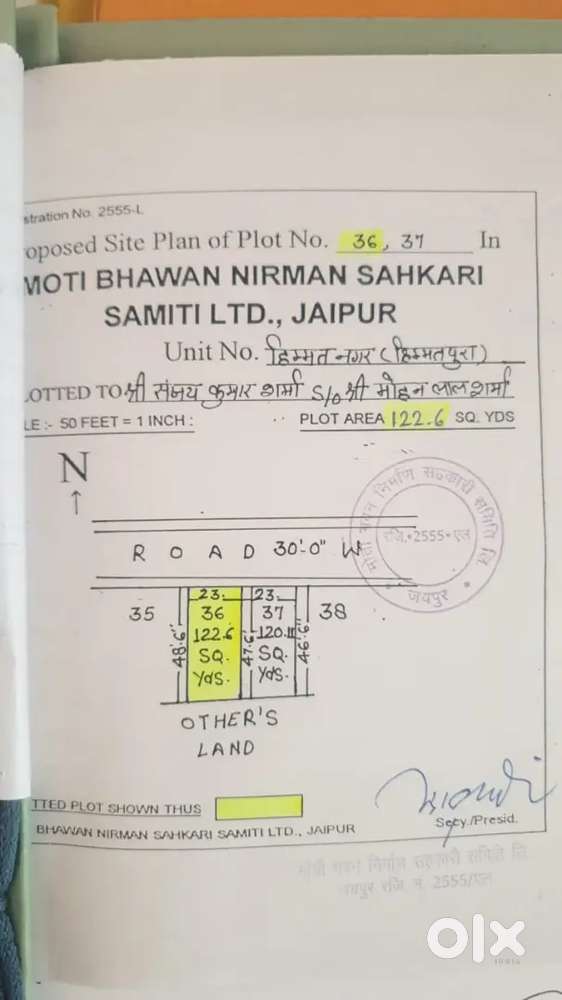 stration No. 2555-L
oposed Site Plan of Plot No. 36, 37 In
MOTI BHAWAN NIRMAN SAHKARI
SAMITI LTD., JAIPUR
Unit No. हिम्मत नगर (हिम्मतपुरा)
OTTED TO श्री संजय कुमार शर्मा S/o श्री मोहन लाल शर्मा
LE :- 50 FEET = 1 INCH :
PLOT AREA 122.6 SQ. YDS
N
ROAD 30'-0" W
35
23
36
122.6
SQ.
Yds.
48'.6"
47'.6"
23
37
120.11
SQ.
Yds.
46'.6"
38
OTHER'S
LAND
रजि.•2555•एल
जयपुर
TTED PLOT SHOWN THUS
BHAWAN NIRMAN SAHKARI SAMITI LTD., JAIPUR
Secy./Presid.
जयपुर रजि. नं. 2555/एल
olx
INDIA